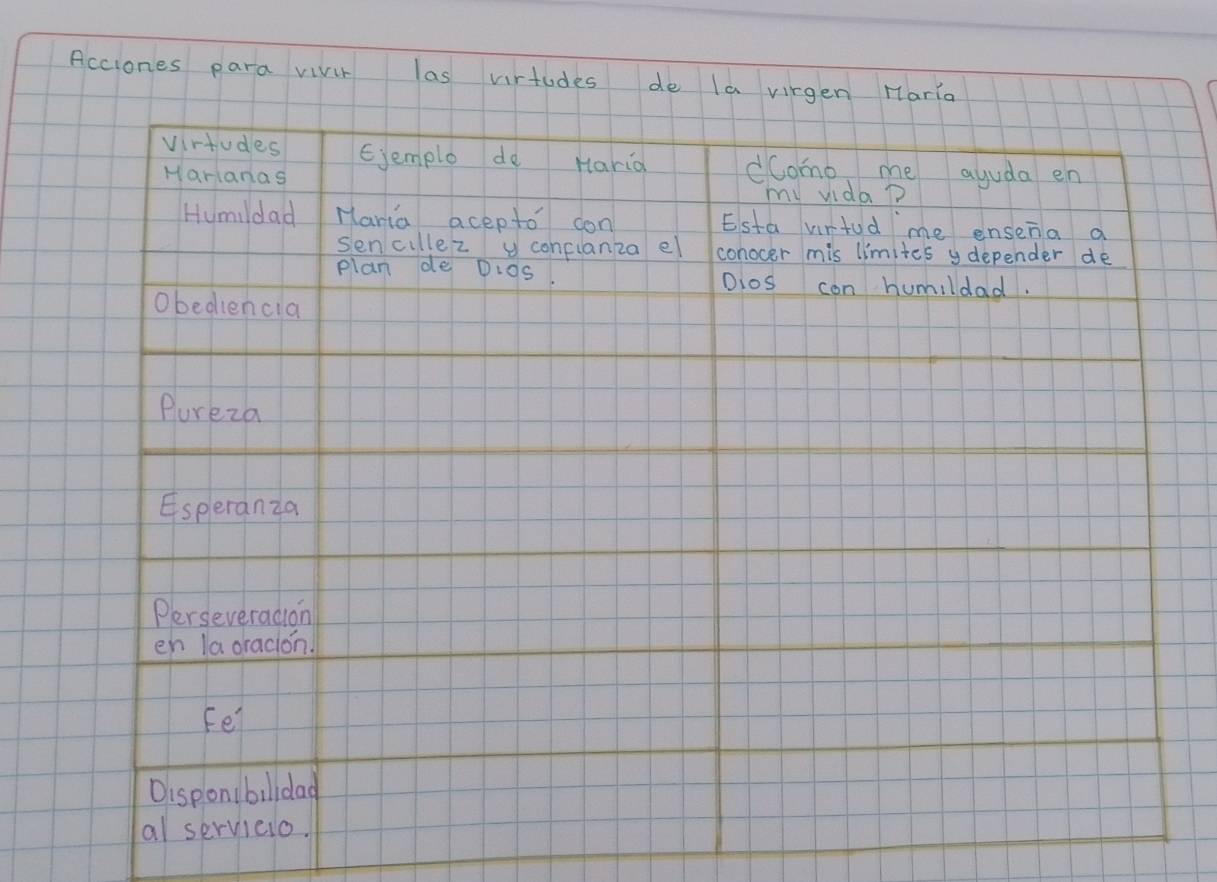 Acciones para vivir las virtudes de la virgen María
Virtudes
Marianas
Ejemplo de María
¿Cómo me ayuda en
mi vida?
Humildad
María aceptó con
sencillez y confianza el
plan de Dios.
Esta virtud me enseña a
conocer mis límites y depender de
Dios con humildad.
Obediencia
Pureza
Esperanza
Perseveración
en la oración.
Fé
Disponibilidad
al servicio.